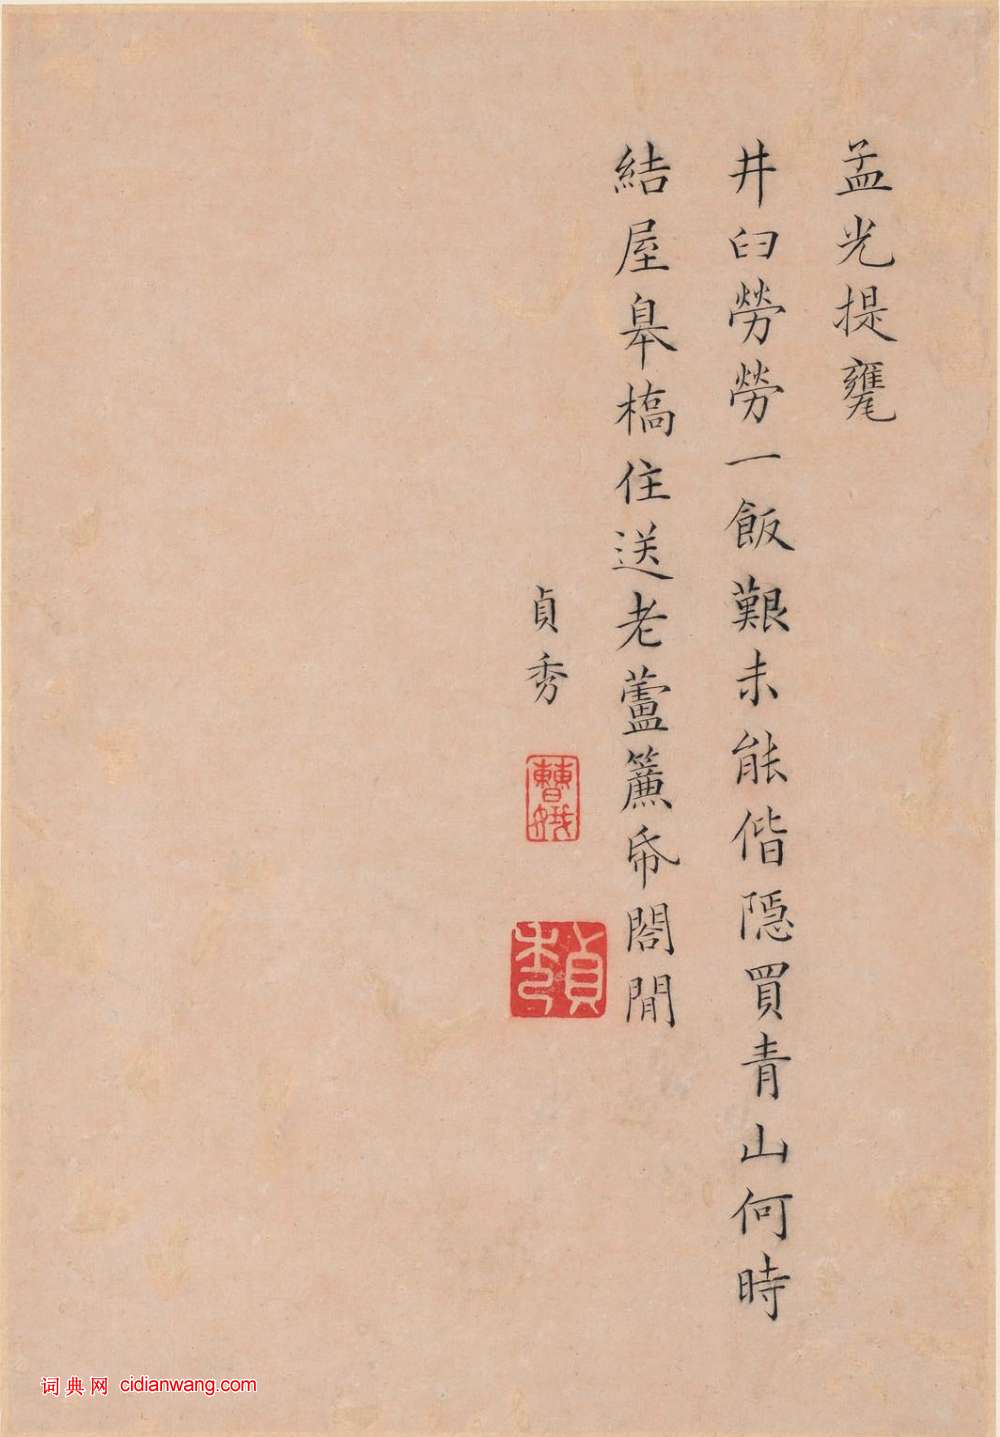 孟光提甕
井臼勞勞一飯艱未能偕隱買青山何時
結屋皋橋住送老蘆簾帋閤閒
貞秀
曹娥
貞秀
词典网 cidianwang.com